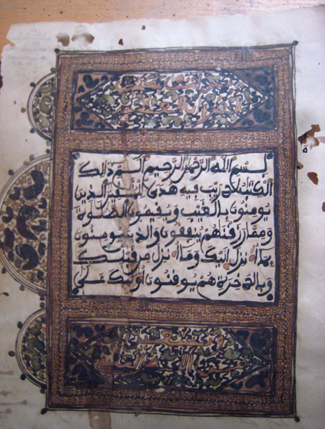 بسم الله الرحمن الرحيم الم ذلك
الكتاب لا ريب فيه هدى للمتقين الذين
يومنون بالغيب ويقيمون الصلوة
ومما رزقنهم ينفقون والذين يومنون
بما أنزل إليك وما أنزل من قبلك
وبالاخرة هم يوقنون أوليك على